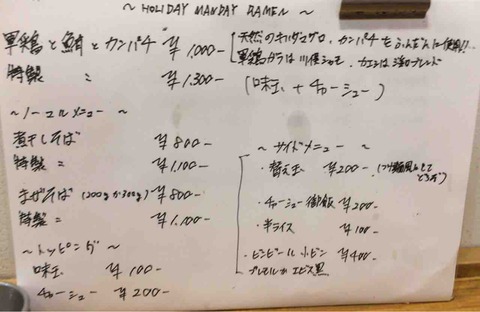 〜 HOLIDAY MANDAY RAMEN 〜
軍鶏と鮪とカンパチ ¥1,000-
天然のキハダマグロ、カンパチをふんだんに使用!!
軍鶏ガラは川俣シャモ、カエシは3種ブレンド
特製 〃 ¥1,300-
(味玉 + チャーシュー)
〜ノーマルメニュー〜
煮干しそば ¥800-
特製 〃 ¥1,100-
まぜそば (200g か 300g) ¥800-
特製 〃 ¥1,100-
〜トッピング〜
味玉 ¥100-
チャーシュー ¥200-
〜サイドメニュー〜
・替え玉 ¥200-
・チャーシュー御飯 ¥200-
・半ライス ¥100-
・ビンビール 小ビン ¥400-
プレモル か エビス黒